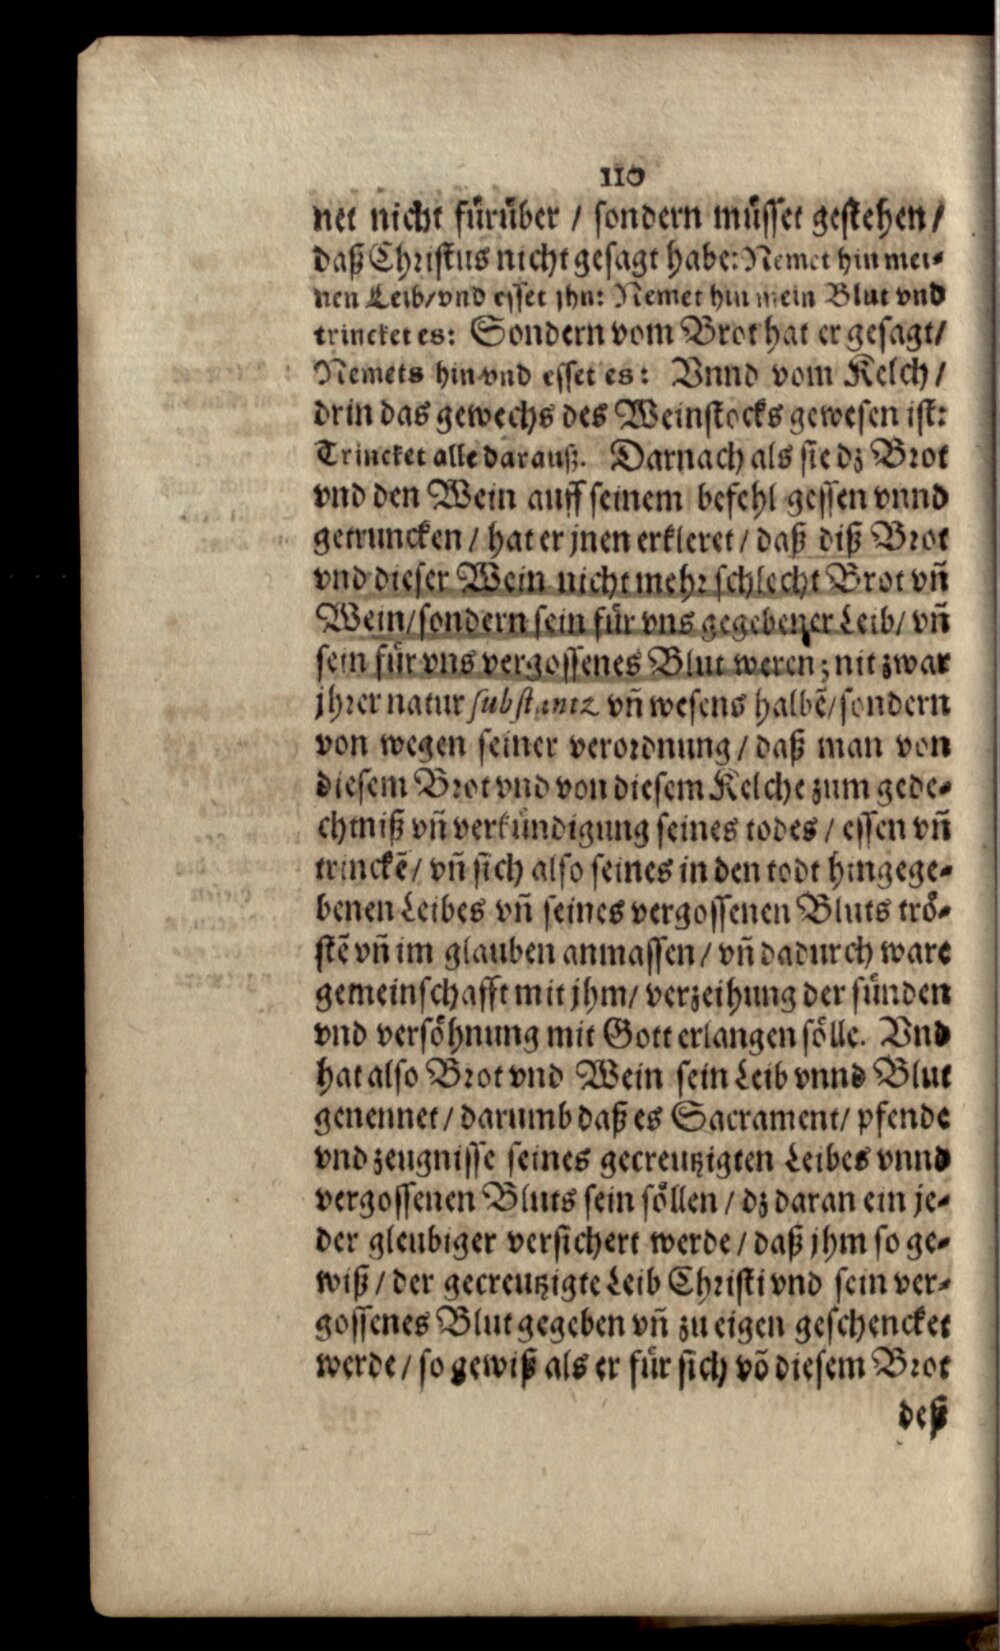 110
net nicht fürüber / sondern müsset gestehen /
daß Christus nicht gesagt habe: Nemet hin mei-
nen Leib/vnd esset jhn: Nemet hin mein Blut vnd
trincket es: Sondern vom Brot hat er gesagt/
Nemets hin vnd esset es: Vnnd vom Kelch /
drin das gewechs des Weinstocks gewesen ist:
Trincket alle darauß. Darnach als sie dz Brot
vnd den Wein auff seinem befehl gessen vnnd
getruncken / hat er jnen erkleret / daß diß Brot
vnd dieser Wein nicht mehr schlecht Brot vñ
Wein/sondern sein für vns gegebener Leib/ vñ
sein für vns vergossenes Blut weren; nit zwar
jhrer natur substantz vñ wesens halbẽ/sondern
von wegen seiner verordnung / daß man von
diesem Brot vnd von diesem Kelche zum gede-
chtniß vñ verkündigung seines todes / essen vñ
trinckẽ/ vñ sich also seines in den todt hingege-
benen Leibes vñ seines vergossenen Bluts trö-
stẽ vñ im glauben anmassen / vñ dadurch ware
gemeinschafft mit jhm/ verzeihung der sünden
vnd versöhnung mit Gott erlangen sölle. Vnd
hat also Brot vnd Wein sein Leib vnnd Blut
genennet / darumb daß es Sacrament/ pfende
vnd zeugnisse seines gecreutzigten Leibes vnnd
vergossenen Bluts sein söllen / dz daran ein je-
der gleubiger versichert werde / daß jhm so ge-
wiß / der gecreutzigte Leib Christi vnd sein ver-
gossenes Blut gegeben vñ zu eigen geschencket
werde / so gewiß als er für sich võ diesem Brot
deß